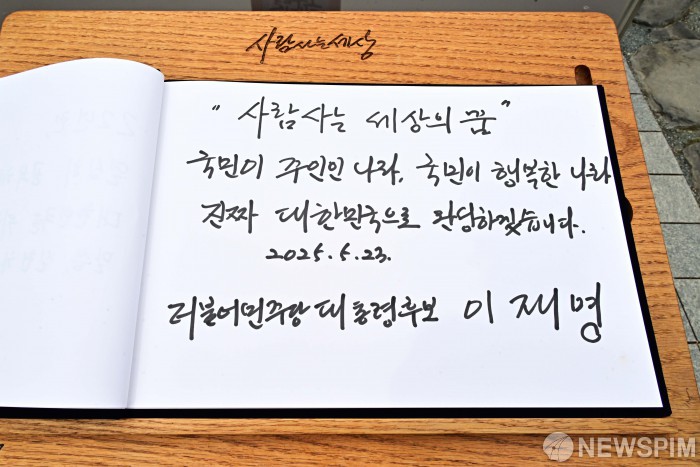 사람사는세상
"사람사는 세상의 꿈"
국민이 주인인 나라, 국민이 행복한 나라
진짜 대한민국으로 완성하겠습니다.
2025. 5. 23.
더불어민주당 대통령후보 이재명
NEWSPIM